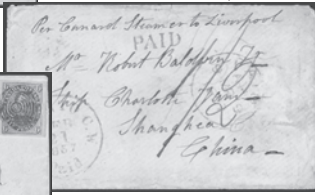 Per Cunard Steamer to Liverpool
PAID
Mr Robert Baldwin
Ship Charlotte
Shanghea
China